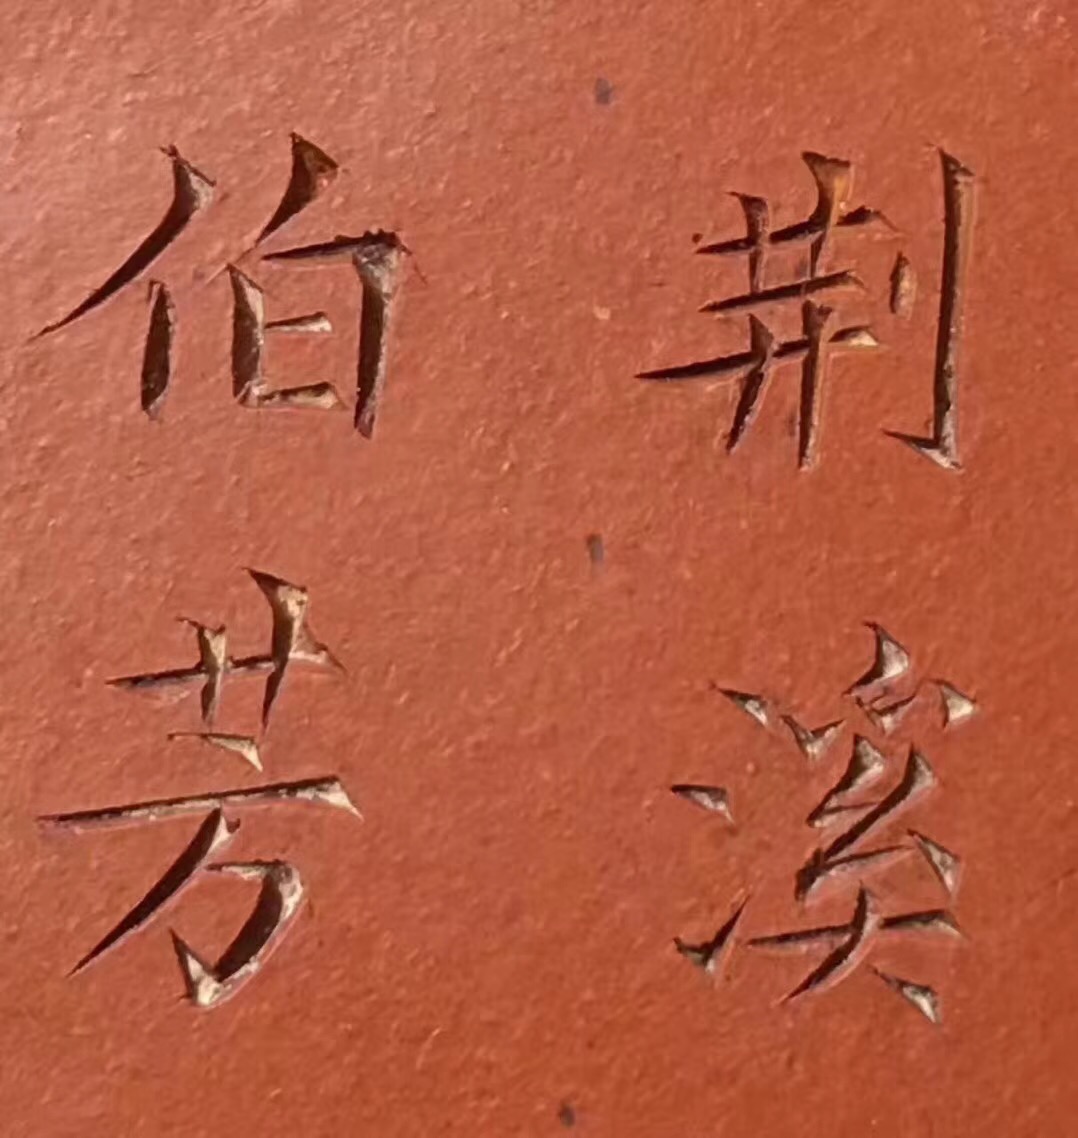 荆溪
伯芳